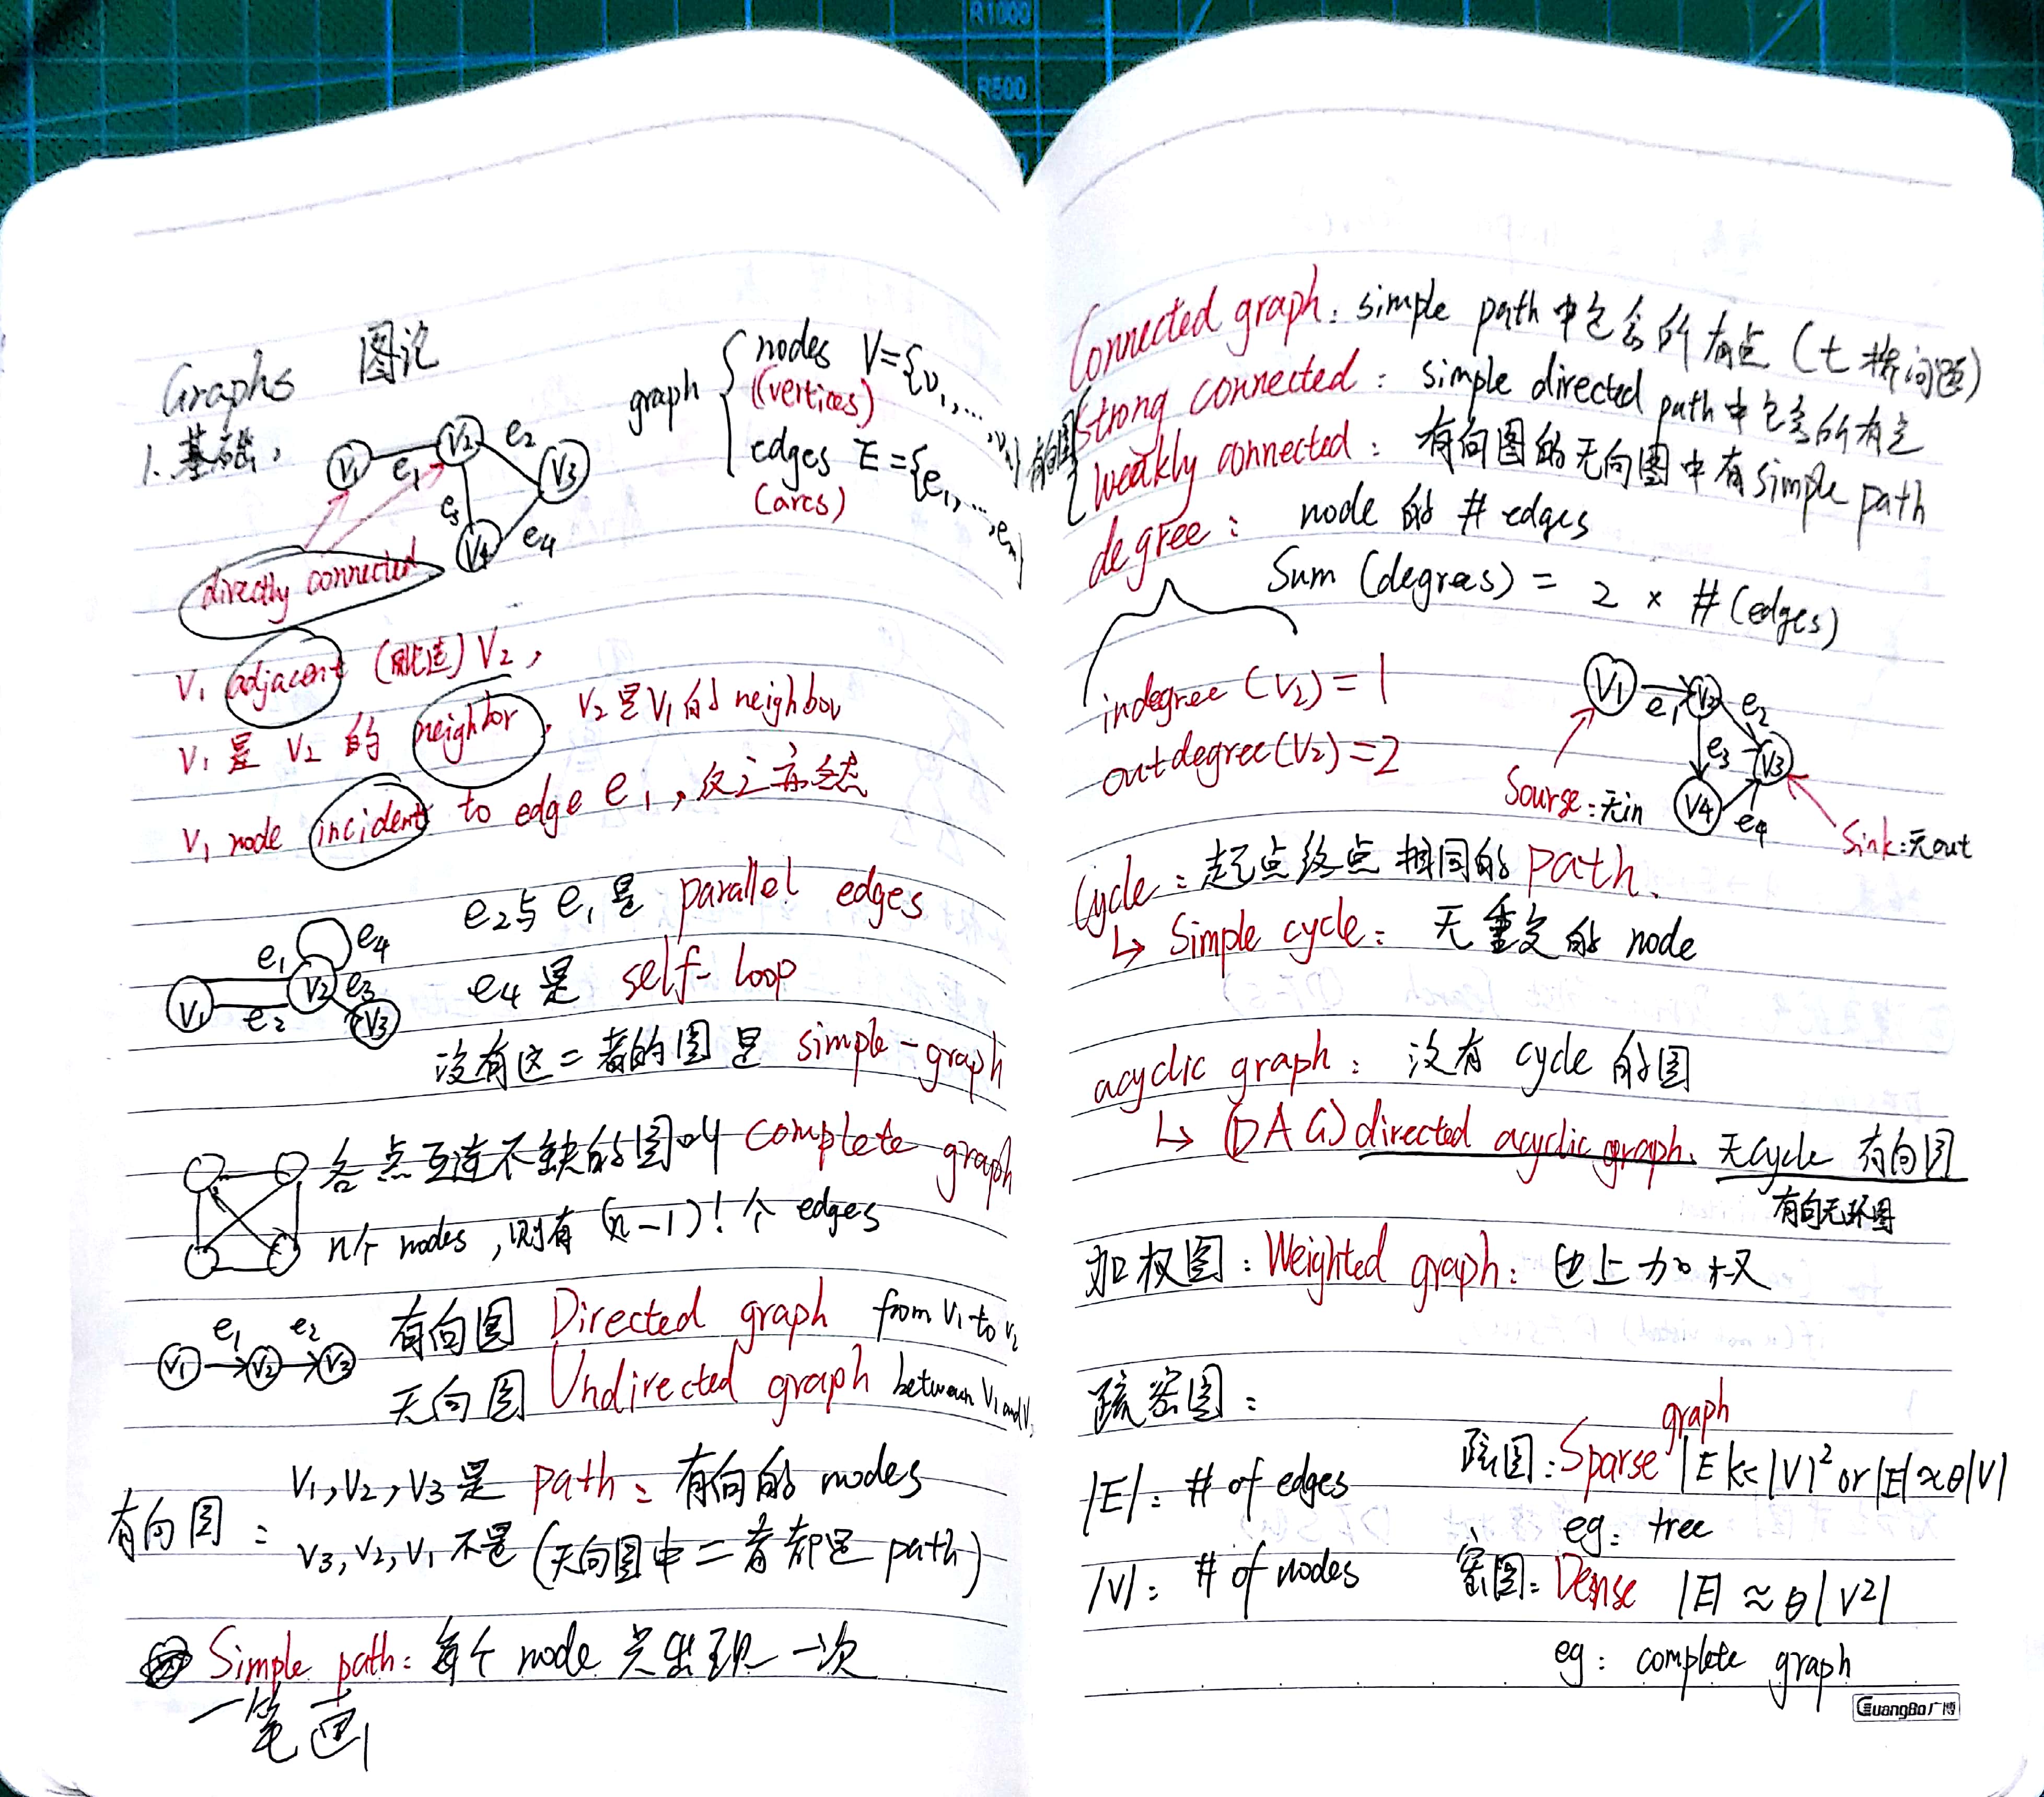 R1000
R500
Graphs 图论
1. 基础:
V1 V2 V3 V4 e1 e2 e3 e4
directly connected
graph { nodes V={v1,...,vn}
(vertices)
edges E={e1,...,em}
(arcs)
V1 adjacent (毗连) V2,
V1 是 V2 的 neighbor, V2 是 V1 的 neighbor
V1 node incident to edge e1, 反之亦然
e2与e1是 parallel edges
e4 是 self-loop
没有这二者的图是 simple-graph
V1 V2 V3 e1 e2 e3 e4
各点互连不缺的图叫 complete graph
n个 nodes, 则有 (n-1)! 个 edges
有向图 Directed graph from V1 to V2
无向图 Undirected graph between V1 and V2
V1 e1 V2 e2 V3
有向图:
V1, V2, V3 是 path: 有向的 nodes
V3, V2, V1 不是 (无向图中二者都是 path)
Simple path: 每个 node 只出现一次
一笔画
Connected graph: simple path 中包含所有点 (七桥问题)
有向图 { Strong connected: simple directed path 中包含所有点
Weakly connected: 有向图的无向图中有 simple path
degree: node 的 # edges
Sum (degrees) = 2 × #(edges)
indegree (V2) = 1
outdegree (V2) = 2
V1 e1 V2 e2 e3 V3 V4 e4
Sourse: 无in
Sink: 无out
Cycle: 起点终点相同的 path.
↳ Simple cycle: 无重复的 node
acyclic graph: 没有 cycle 的图
↳ (DAG) directed acyclic graph. 无cycle 有向图
有向无环图
加权图: Weighted graph: 边上加权
疏密图:
|E|: # of edges
|V|: # of nodes
疏图: Sparse graph |E|<<|V|² or |E|≈θ|V|
eg: tree
密图: Dense |E|≈θ|V²|
eg: complete graph
GuangBo广博